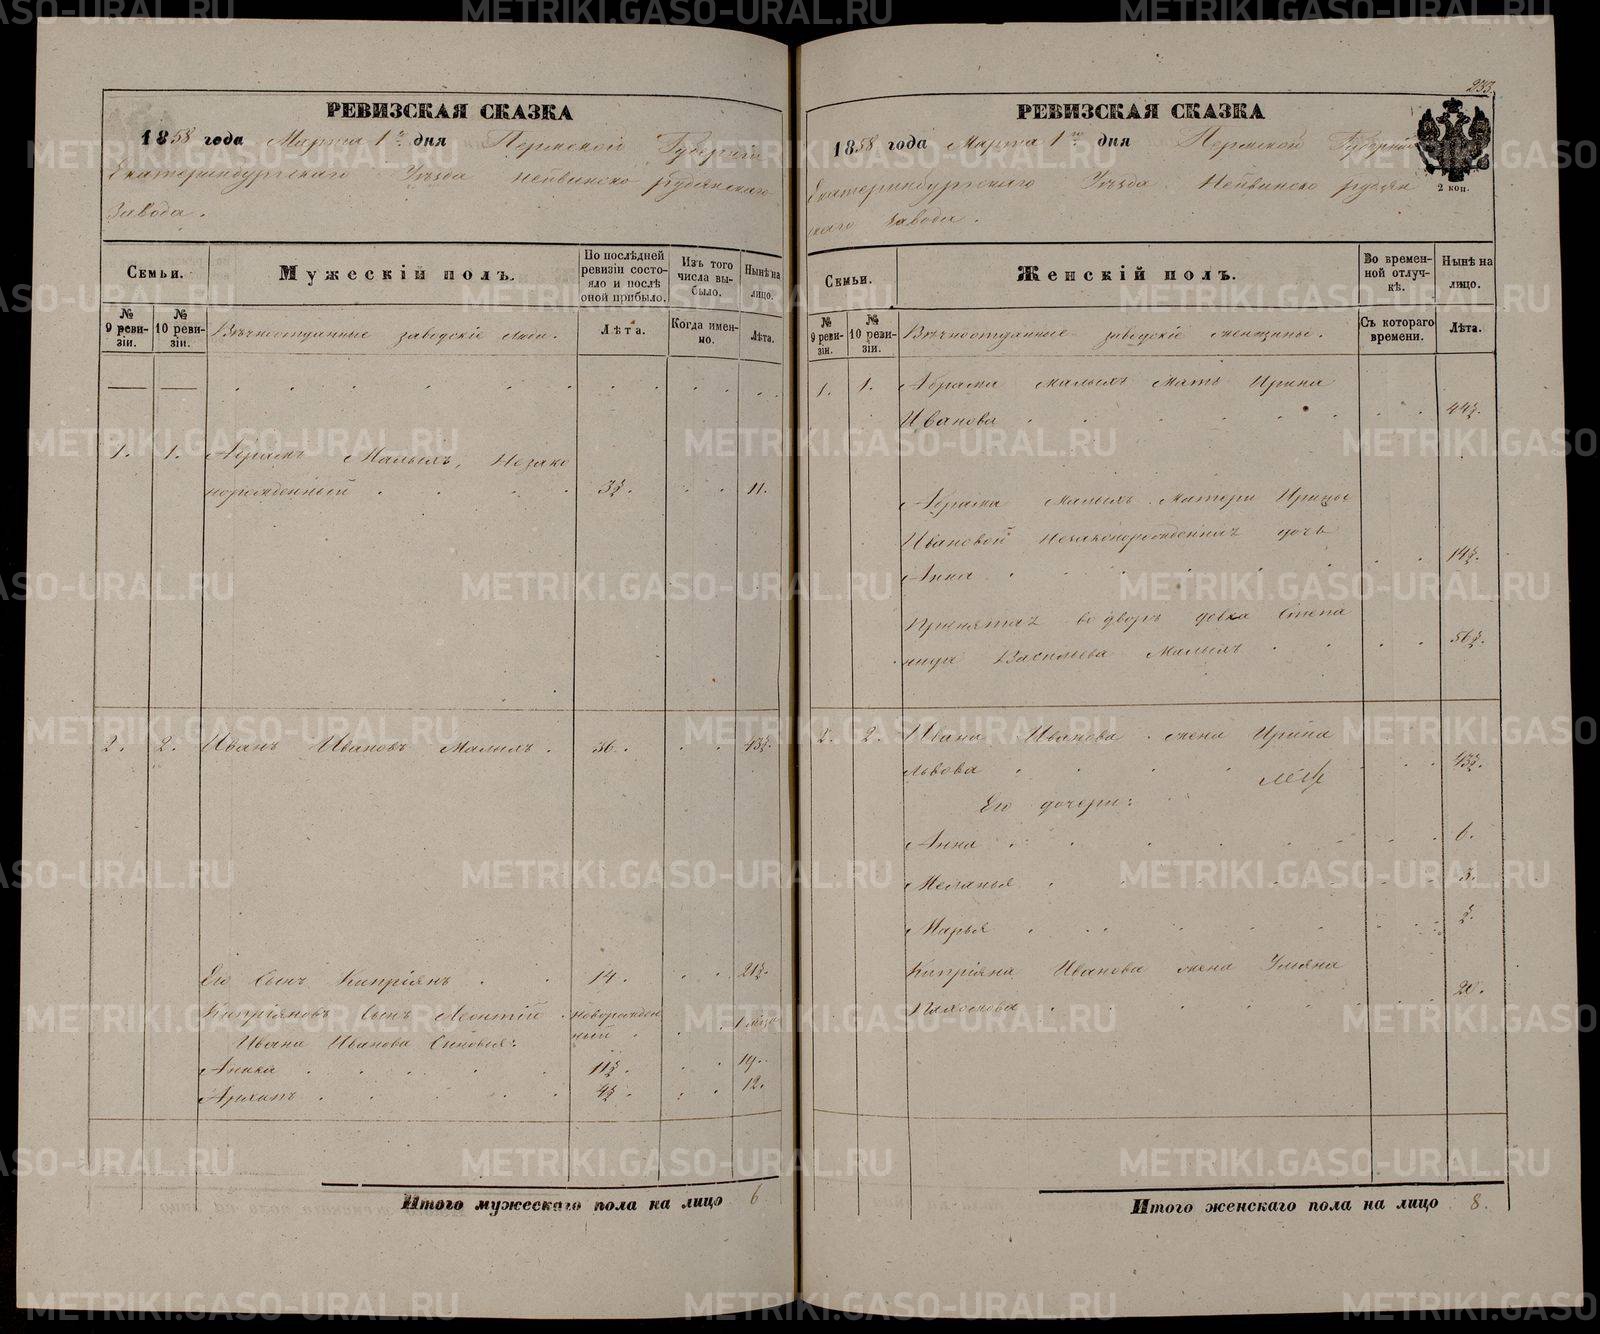 РЕВИЗСКАЯ СКАЗКА
1858 года Марта 1го дня Пермской Губернии
Екатеринбургскаго Уѣзда Нейвинско рудянскаго
завода.
Семьи.
Мужескій полъ.
По послѣдней ревизіи состояло и послѣ оной прибыло.
Изъ того числа выбыло.
Нынѣ на лицо.
№ 9 ревизіи.
№ 10 ревизіи.
Вѣчноотданные заводскіе люди.
Лѣта.
Когда именно.
Лѣта.
1. 1. Абрамъ Малыхъ, Незако
норожденный 3½. 11.
2. 2. Иванъ Ивановъ Малыхъ. 36. 43½.
Его Сынъ Кипріянъ 14. 21½.
Кипріяновъ Сынъ Леонтій новорожден
ный
Ивана Иванова Сыновья:
Аника 11½ 19.
Архипъ 4½. 12.
Итого мужескаго пола на лицо 6
233.
РЕВИЗСКАЯ СКАЗКА
1858 года Марта 1го дня Пермской Губерніи
Екатеринбургскаго Уѣзда Нейвинско рудян
скаго завода.
2 коп.
Семьи.
Женскій полъ.
Во временной отлучкѣ.
Нынѣ на лицо.
№ 9 ревизіи.
№ 10 ревизіи.
Вѣчноотданные заводскіе женщины.
Съ котораго времени.
Лѣта.
1. 1. Абрама Малыхъ Мать Ирина
Иванова 44½.
Абрама Малыхъ Матери Ирины
Ивановой Незаконорожденная дочь
Анна 14½.
Принятая во дворъ девка Степа
нида Васильева Малыхъ 56½.
2. 2. Ивана Иванова жена Ирина
Львова 43½.
Его дочери:
Анна 6.
Меланья 3.
Марья ½.
Кипріяна Иванова жена Ульяна
20.
Итого женскаго пола на лицо 8.
METRIKI.GASO-URAL.RU